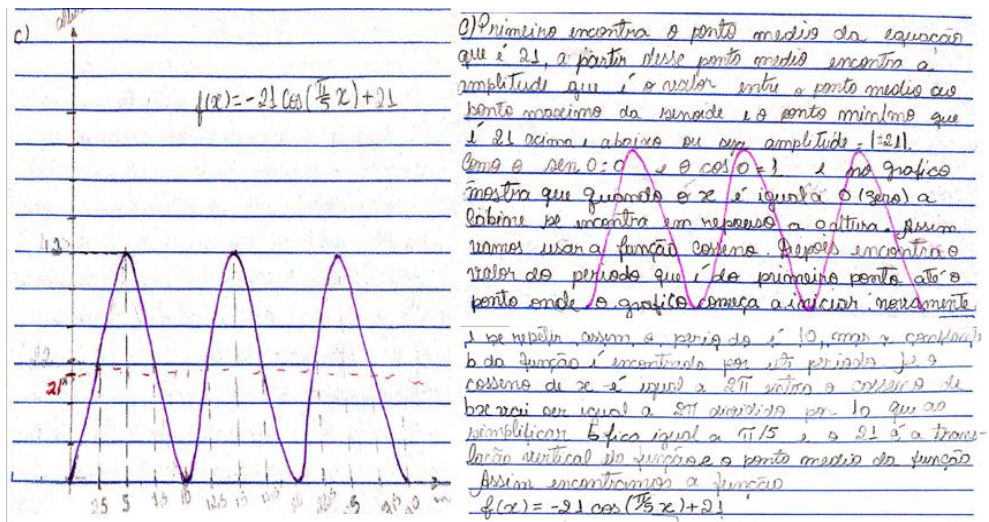 c)
f(x) = -21 cos(π/5 x) + 21
42
22
21
2,5 5 7,5 10 12,5 15
C) Primeiro encontra o ponto medio da equação
que é 21, a partir desse ponto medio encontra a
amplitude que é o valor entre o ponto medio ao
ponto maximo da senoide e o ponto minimo que
é 21 acima e abaixo ou seja amplitude = |-21|.
Como o sen 0 = 0 e o cos 0 = 1 e no grafico
mostra que quando o x é igual á 0 (zero) a
Cabine se encontra em repouso a altura. Assim
vamos usar a função cosseno. Depois encontra o
valor do periodo que é do primeiro ponto até o
ponto onde o grafico começa a iniciar novamente
e se repetir assim, o periodo é 10, mas a constante
b da função é encontrada por periodo. Se o
cosseno de x é igual a 2π então o cosseno de
bx vai ser igual a 2π dividido por 10 que ao
simplificar b fica igual a π/5 e o 21 é a trans-
lação vertical da função e o ponto medio da função
Assim encontramos a função
f(x) = -21 cos(π/5 x) + 21